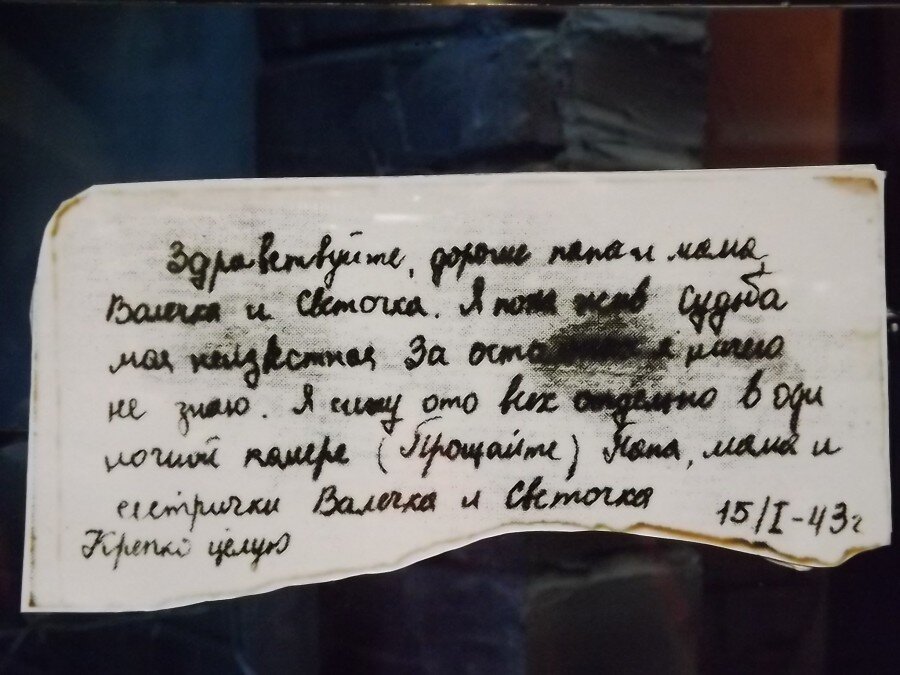 Здравствуйте, дорогие папа и мама,
Валечка и Светочка. Я пока жив Судьба
моя неизвестная За я ничего
не знаю. Я сижу ото всех отдельно в оди
ночной камере (Прощайте) Папа, мама и
сестрички Валечка и Светочка
15/I-43г
Крепко целую